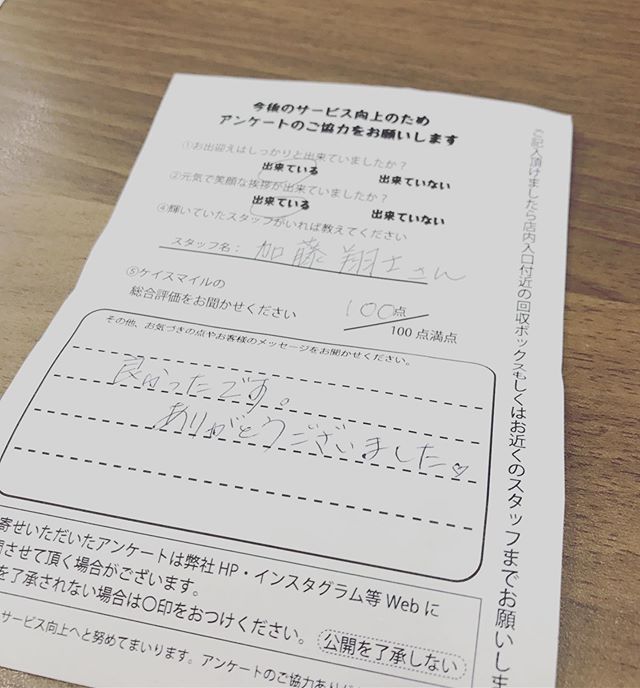 今後のサービス向上のため
アンケートのご協力をお願いします
①お出迎えはしっかりと出来ていましたか？
出来ている 出来ていない
②元気で笑顔な挨拶が出来ていましたか？
出来ている 出来ていない
④輝いていたスタッフがいれば教えてください
スタッフ名： 加藤 翔士さん
⑤ケイスマイルの
総合評価をお聞かせください 100点
100点満点
その他、お気づきの点やお客様のメッセージをお聞かせください。
良かったです。
ありがとうございました♡
寄せいただいたアンケートは弊社HP・インスタグラム等Webに
させて頂く場合がございます。
を了承されない場合は〇印をおつけください。 公開を了承しない
サービス向上へと努めてまいります。アンケートのご協力あり
ご記入頂けましたら店内入口付近の回収ボックスもしくはお近くのスタッフまでお願いしま